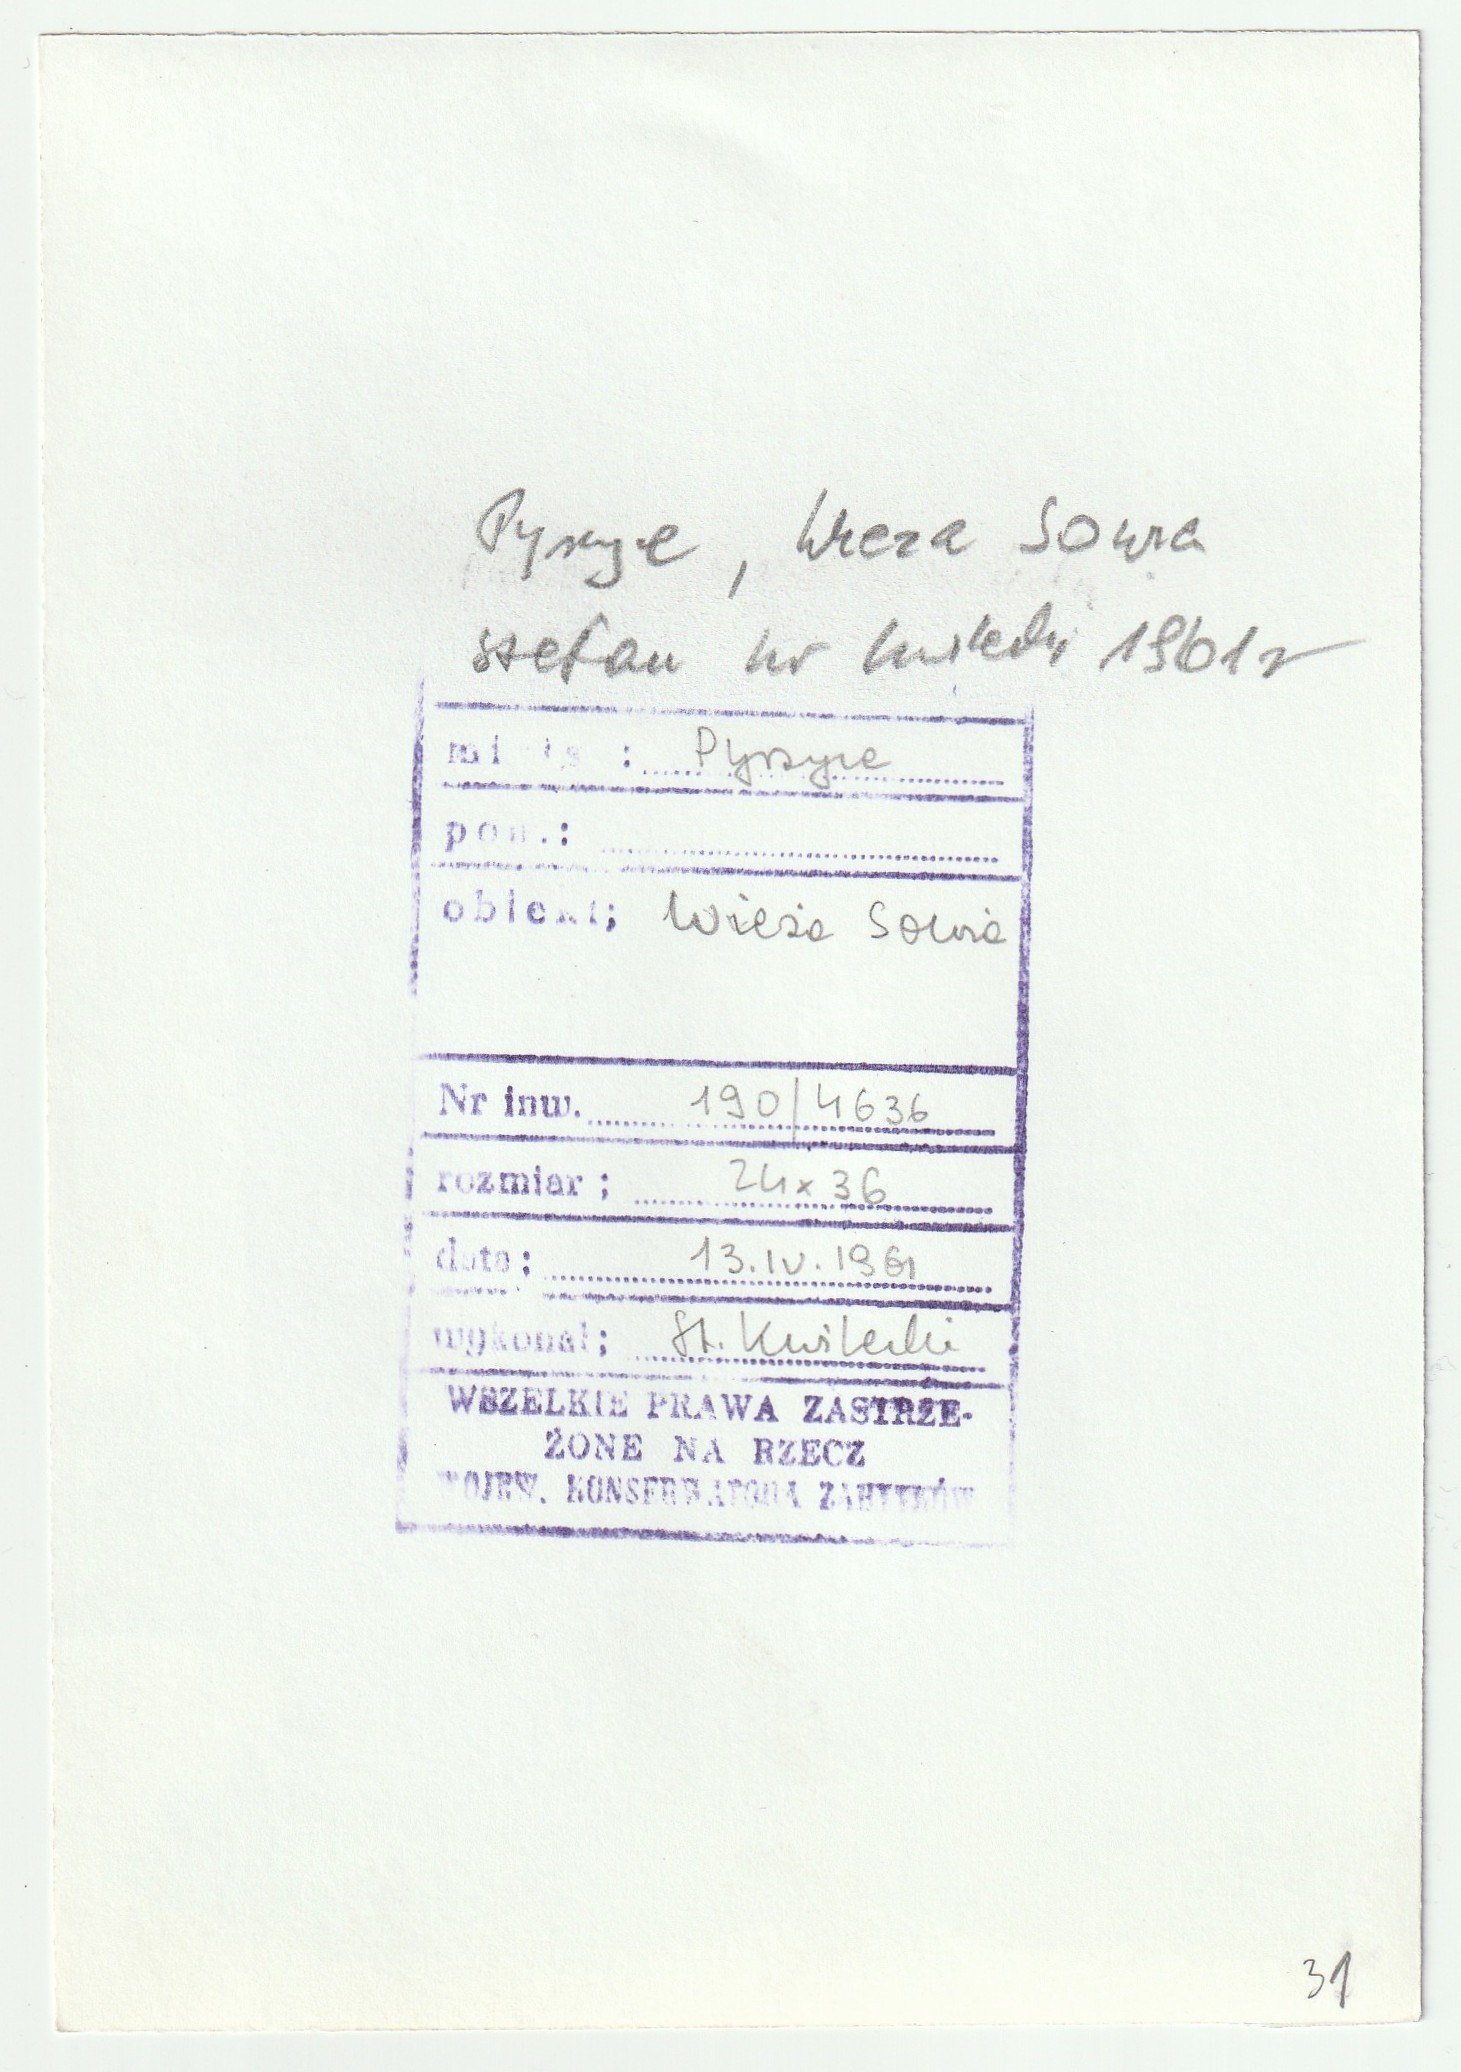 Pyrzyce, Wieza Sowia
Stefan Kwilecki 1961 r
miejs : Pyrzyce
pow.:
obiekt; Wieża Sowia
Nr inw. 190/4636
rozmiar; 24x36
data; 13.IV.1961
wykonał; St. Kwilecki
WSZELKIE PRAWA ZASTRZE-
ŻONE NA RZECZ
WOJEW. KONSERWATORA ZABYTKÓW
31